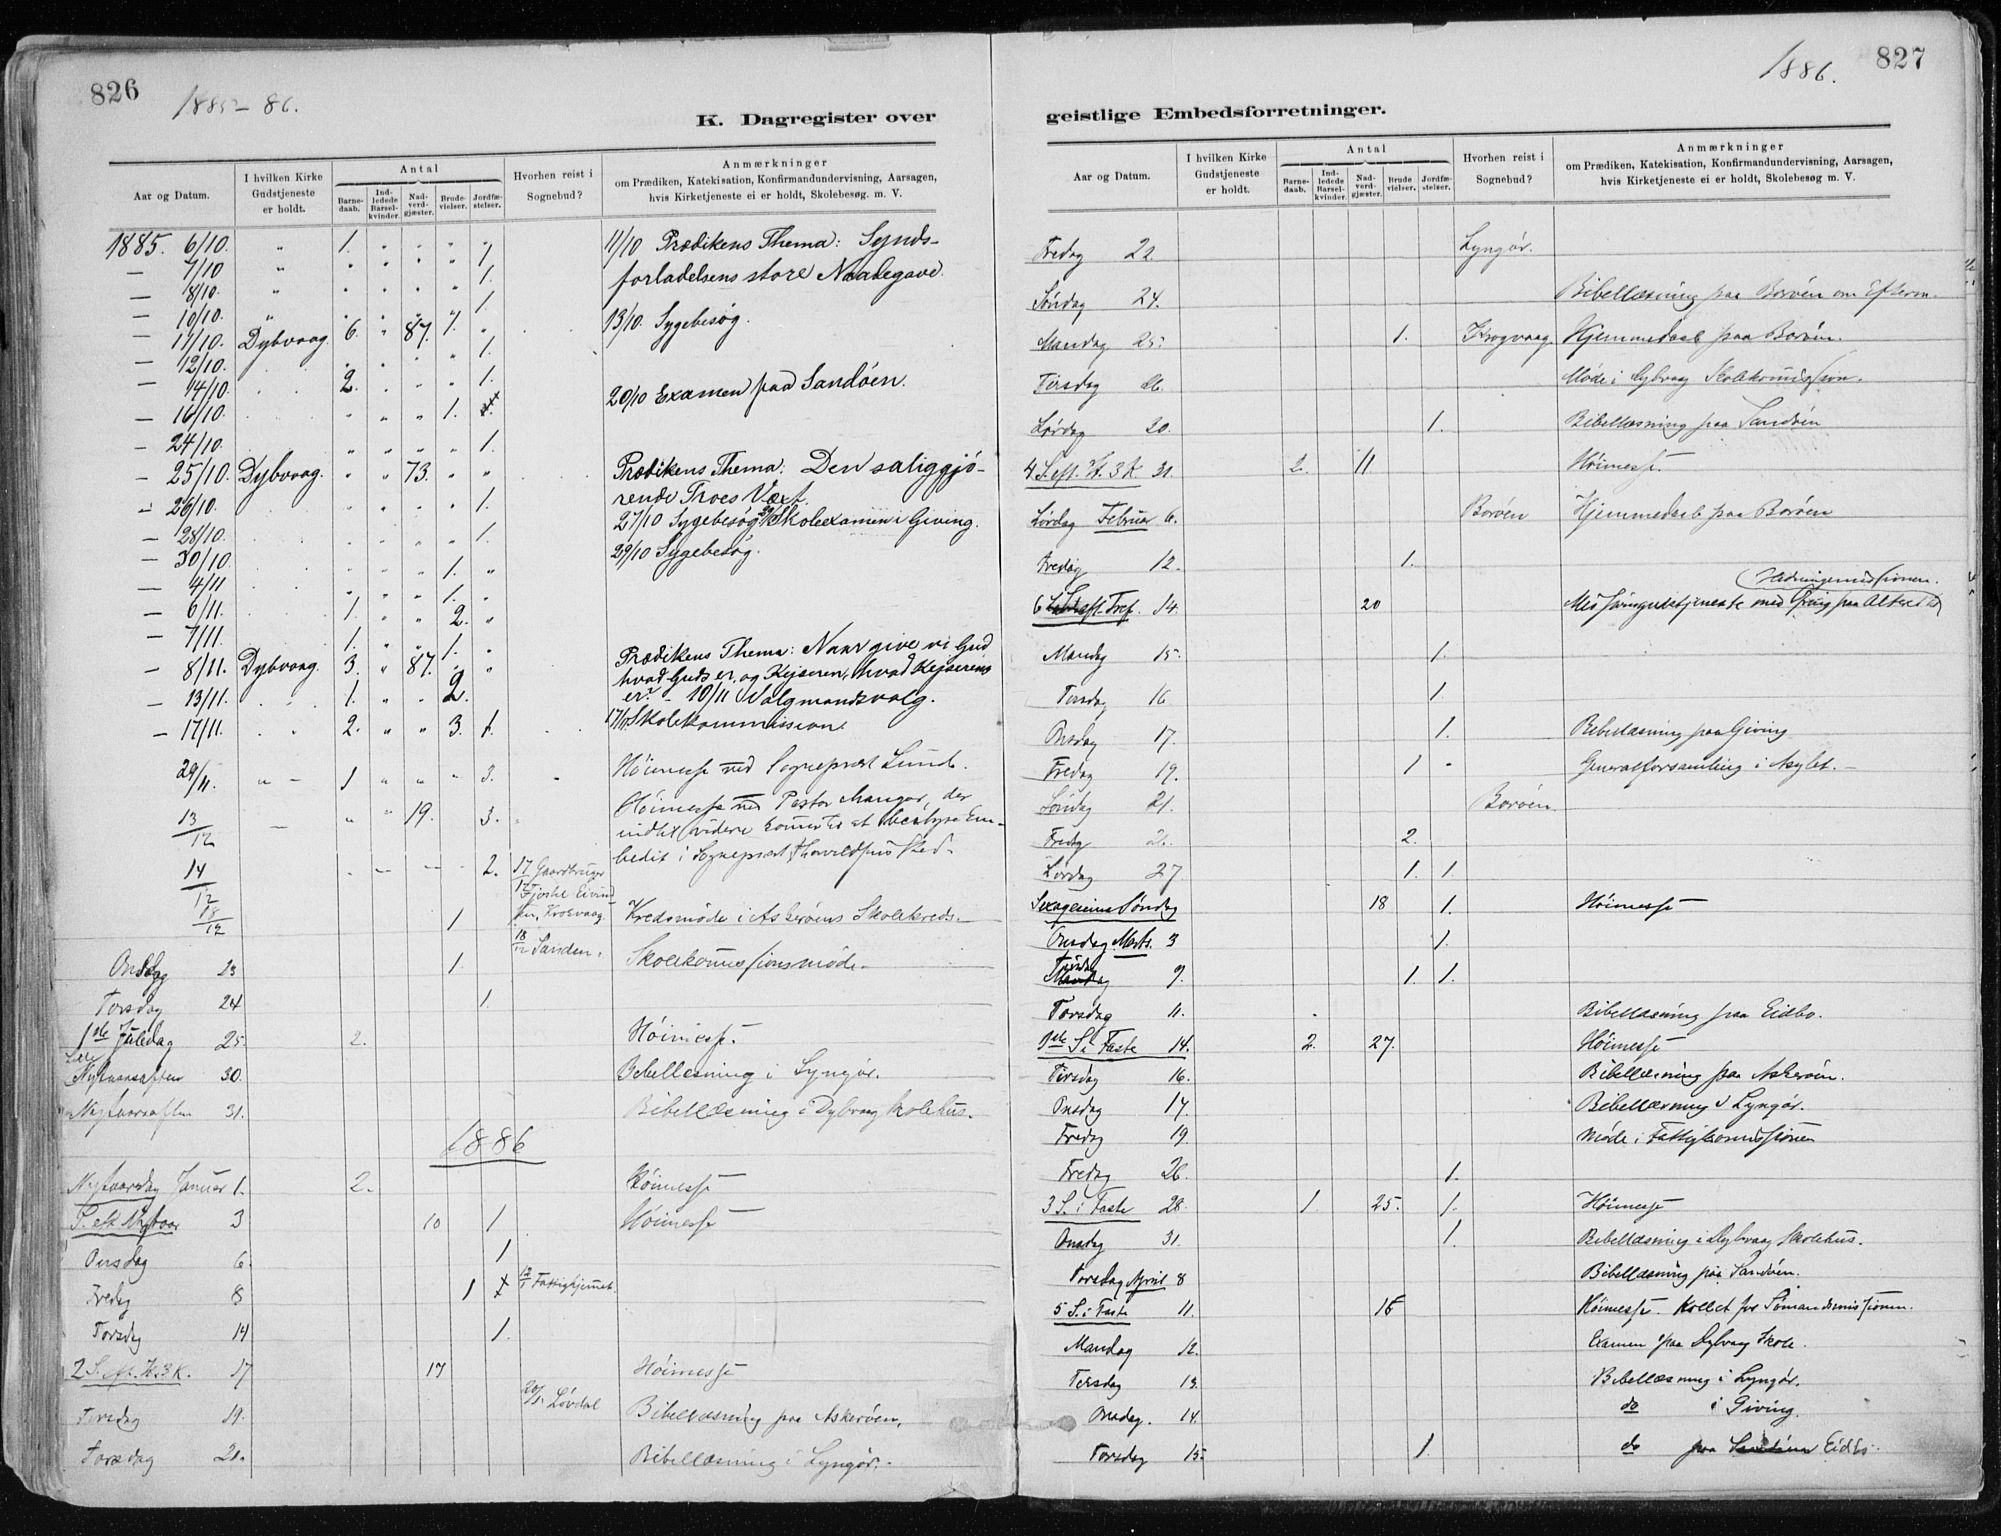 826
1885-86.
K. Dagregister over
Aar og Datum.
I hvilken Kirke Gudstjeneste er holdt.
Antal
Barnedaab.
Indledede Barselkvinder.
Nadverdgjæster.
Brudevielser.
Jordfæstelser.
Hvorhen reist i Sognebud?
Anmærkninger
om Prædiken, Katekisation, Konfirmandundervisning, Aarsagen,
hvis Kirketjeneste ei er holdt, Skolebesøg m. V.
1885. 6/10. " 1. " " " " 11/10 Prædikens Thema: Synds-
— 7/10 " " " " " 1. forladelsens store Naadegave.
— 8/10. " " " " " 1.
— 10/10. " " " " " 1. 13/10. Sygebesøg.
— 11/10. Dybvaag. 6. " 87. 1. "
— 12/10. " " " " 1.
— 14/10. 2. " " " 1. 20/10 Examen paa Sandøen.
— 16/10. " " " 1.
— 24/10. " " " " 1.
— 25/10. Dybvaag. " " 73. " " Prædikens Thema: Den saliggjø-
rende Troes Væxt.
— 26/10. " " " " 1. 27/10 Sygebesøg Skoleexamen i Giving.
— 28/10. " " " " 1. 29/10 Sygebesøg.
— 30/10. " " " 1. "
— 4/11 " " " 1. "
— 6/11. 1. " " 2. "
— 7/11. 1. " " 1. " Prædikens Thema: Naar give vi Gud
— 8/11. Dybvaag. 3. " 87. " " hvad Guds er, og Kejseren, hvad Kejserens
— 13/11. 1. " " 2. er? - 10/11 Valgmandsvalg.
— 17/11. 2. " " 3. 1. 17/11 Skolekommission.
29/11. " - 1 " " " 3. Høimesse ved Sogneprest Lund.
13/12 — " " 19. 3. Høimesse ved Pastor Mangor, der
indtil videre at bestyre Em-
bedet i Sogneprest Sted.
14/12 2. 17/12 Gaardbruger
Eivind
Krokvaag.
18/12 1 Kredsmøde i Askerøens Skolekreds.
18/12 Sanden.
Onsdag 23 1. Skolekommissionsmøde.
Torsdag 24 1.
1ste Juledag 25. 2. Høimesse.
Lille Nytaarsaften 30. Bibellæsning i Lyngør.
Nytaarsaften 31. Bibellæsning i Dybvaag Skolehus.
1886
Nytaarsdag Januar 1. 2. Høimesse
S. eft. Nytaar 3 10 1 Høimesse
Onsdag 6. 1
Fredag 8 1 12/1 Fattighjemmet.
Torsdag 14 1.
2 S. eft. H. 3 K. 17 17 Høimesse
20/1. Løvdal
Tirsdag 19. Bibellæsning paa Askerøen.
Torsdag 21. Bibellæsning i Lyngør.
1886.
827
geistlige Embedsforretninger.
Aar og Datum.
I hvilken Kirke Gudstjeneste er holdt.
Antal
Barnedaab.
Indledede Barselkvinder.
Nadverdgjæster.
Brudevielser.
Jordfæstelser.
Hvorhen reist i Sognebud?
Anmærkninger
om Prædiken, Katekisation, Konfirmandundervisning, Aarsagen,
hvis Kirketjeneste ei er holdt, Skolebesøg m. V.
Fredag 22. Lyngør.
Søndag 24. Bibellæsning paa Borøen om Efterm.
Mandag 25. 1. Krogvaag Hjemmedaab paa Borøen.
Tirsdag 26. Møde i Dybvaag Skolekommission.
Lørdag 1. Bibellæsning paa Sandøen
4 S. eft. H. 3 K. 31. 2. 11 Høimesse.
Lørdag Februar 6. Borøen Hjemmedaab paa Borøen
Fredag 12. 1.
Hedningemissionen.
6 S. eft. 14. 20 Missionsgudstjeneste med paa Alteret
Mandag 15. 1.
Tirsdag 16 1.
Onsdag 17. 1. Bibellæsning paa Giving
Fredag 19. 1 " Generalforsamling i Asylet.
Søndag 21. Borøen.
Fredag 26. 2.
Lørdag 27. 1. 1.
Sexagesima Søndag 18 1. Høimesse
Onsdag Marts. 3 1.
Tirsdag 9. 1 1.
Torsdag 11. Bibellæsning paa Eidbo.
1ste S. i Faste 14. 2. 27. Høimesse
Tirsdag 16. Bibellæsning paa Askerøen.
Onsdag 17. Bibellæsning i Lyngør.
Fredag 19. Møde i Fattigkommissionen
Fredag 26. 1.
3 S. i Faste 28. 1. 25. 1. Høimesse
Onsdag 31. 1. Bibellæsning i Dybvaag Skolehus.
Torsdag April 8 Bibellæsning paa Sandøen.
5 S. i Faste 11. 15 Høimesse. Kollet for Sømandsmissionen.
Mandag 12. Examen paa Dybvaag Skole.
Tirsdag 13. Bibellæsning i Lyngør.
Onsdag. 14. do i Giving.
Torsdag 15. 1. do paa Sandøen Eidbo.